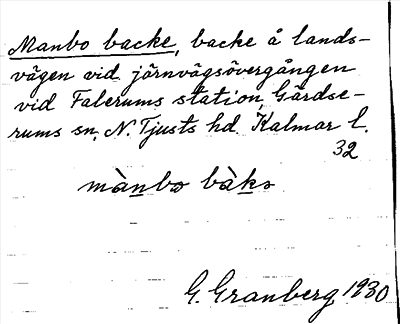 Manbo backe, backe å lands-
vägen vid järnvägsövergången
vid Falerums station, Gärdse-
rums sn, N. Tjusts hd. Kalmar l.
32
màṉbɔ bàḵə
G. Granberg 1930